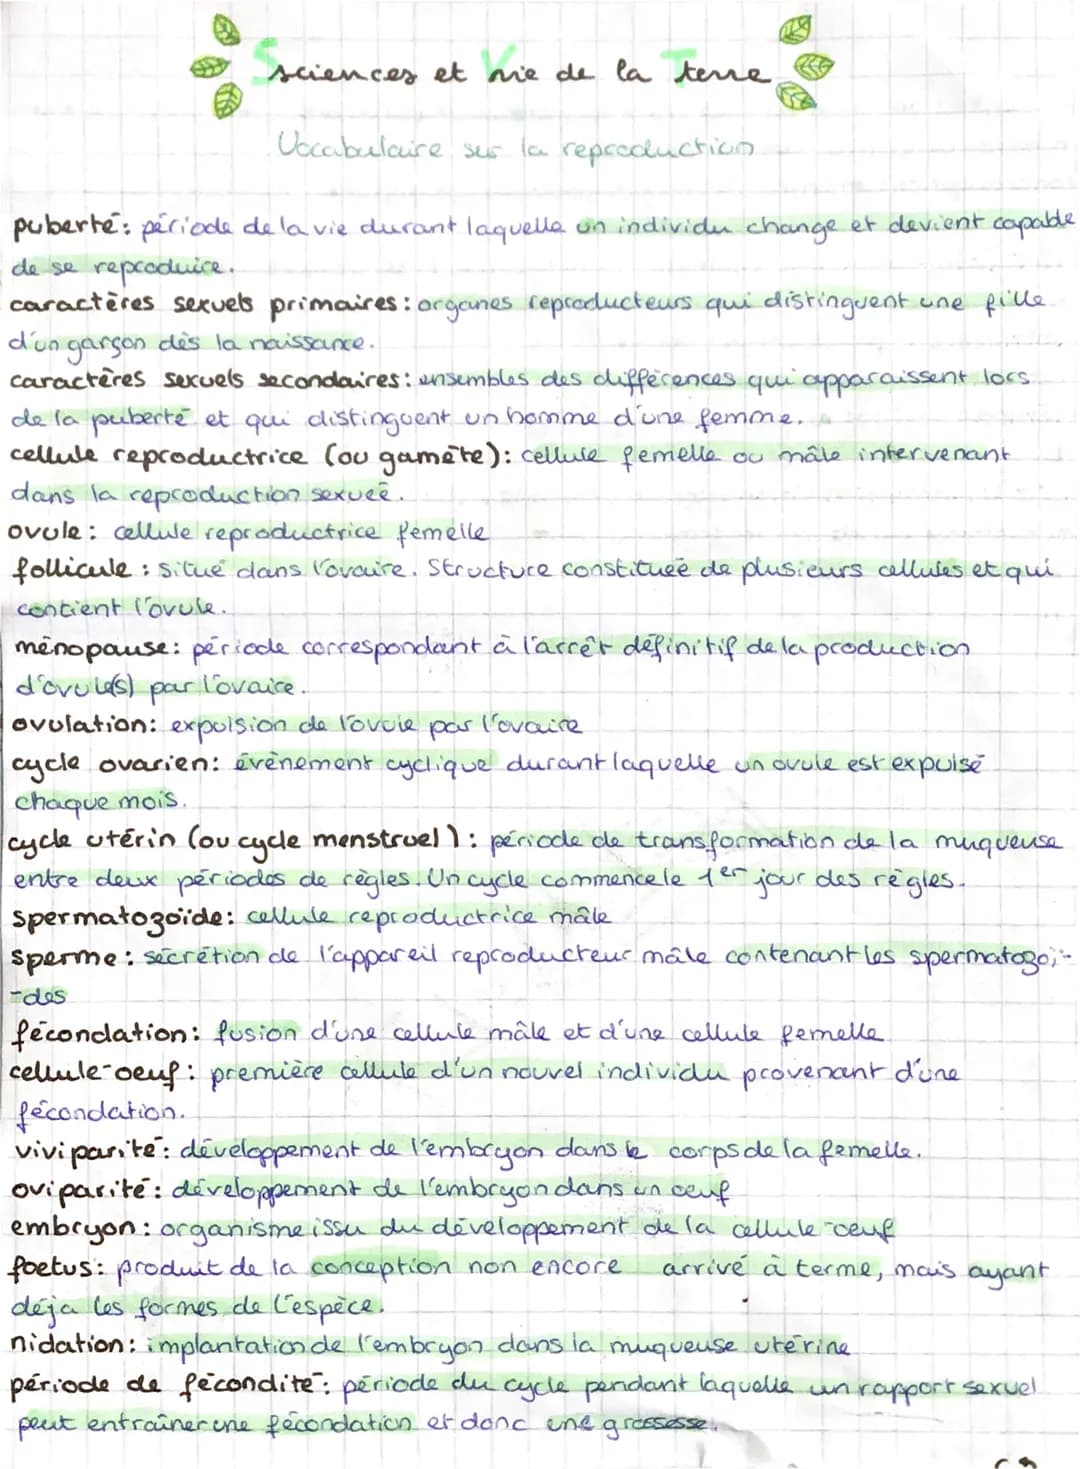 Sciences et Vie de la Terre
Vocabulaire sur la reproduction
puberté: période de la vie durant laquelle un individu change et devient capable
de se reproduire.
caractères sexuels primaires: organes reproducteurs qui distinguent une fille
d'un garçon dès la naissance.
caractères sexuels secondaires: ensembles des différences qui apparaissent lors
de la puberté et qui distinguent un homme d'une femme.
cellule reproductrice (ou gamète): cellule femelle ou mâle intervenant
dans la reproduction sexuée.
ovule: cellule reproductrice femelle
follicule: situé dans l'ovaire. Structure constituée de plusieurs cellules et qui
contient l'ovule.
ménopause: période correspondant à l'arrêt définitif de la production
d'ovule(s) par l'ovaire.
ovulation: expulsion de l'ovule par l'ovaire
cycle ovarien: évènement cyclique durant laquelle un ovule est expulsé
chaque mois.
cycle utérin (ou cycle menstruel): période de transformation de la muqueuse
entre deux périodes de règles. Un cycle commence le 1er jour des règles.
spermatozoïde: cellule reproductrice mâle
sperme: sécrétion de l'appareil reproducteur mâle contenant les spermatozoï-
-des
fécondation: fusion d'une cellule mâle et d'une cellule femelle
cellule-oeuf: première cellule d'un nouvel individu provenant d'une
fécondation.
viviparité: développement de l'embryon dans le corps de la femelle.
oviparité: développement de l'embryon dans un oeuf
embryon: organisme issu du développement de la cellule-oeuf
foetus: produit de la conception non encore arrivé à terme, mais ayant
déja les formes de l'espèce.
nidation: implantation de l'embryon dans la muqueuse utérine
période de fécondité: période du cycle pendant laquelle un rapport sexuel
peut entraîner une fécondation et donc une grossesse.